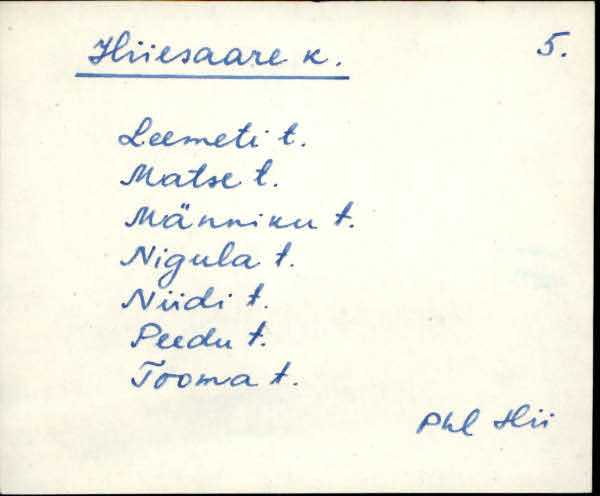 Hiiesaare k. 5.
Leemeti t.
Matse t.
Männiku t.
Nigula t.
Niidi t.
Peedu t.
Tooma t.
Phl Hii